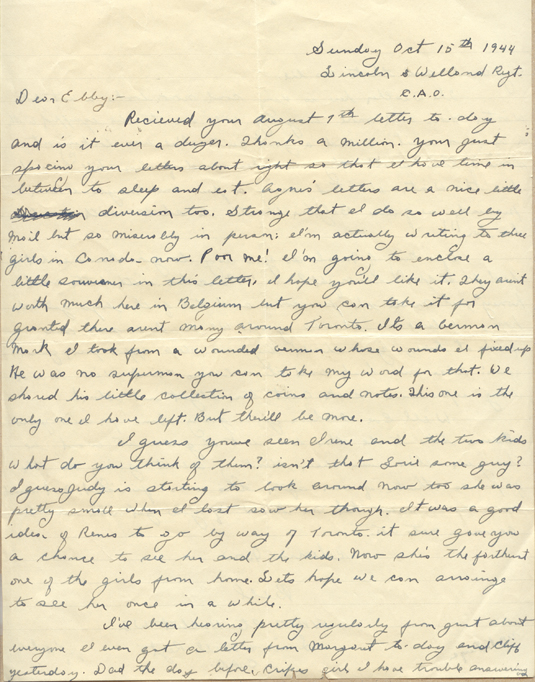 Sunday Oct 15th 1944
Lincoln & Welland Regt.
C.A.O.
Dear Ebby:-
Recieved your August 9th letter to-day
and is it ever a duzer. Thanks a million. Your just
spacing your letters about right so that I have time in
between to sleep and eat. Agnes' letters are a nice little
diversion too. Strange that I do so well by
mail but so miserably in person; I'm actually writing to three
girls in Canada now. Poor me! I'm going to enclose a
little souvenir in this letter, I hope you'll like it. They arent
worth much here in Belgium but you can take it for
granted there arent many around Toronto. Its a German
Mark I took from a wounded German whose wounds I fixed up
He was no superman you can take my word for that. We
shared his little collection of coins and notes. This one is the
only one I have left. But there'll be more.
I guess youve seen Irene and the two kids
what do you think of them? isn't that some guy?
I guess Judy is starting to look around now too she was
pretty small when I last saw her though. It was a good
idea of Renes to go by way of Toronto. it sure gave you
a chance to see her and the kids. Now she's the farthest
one of the girls from home. Lets hope we can arrange
to see her once in a while.
I've been hearing pretty regularly from just about
everyone I even got a letter from Margaret to-day and Cliff
yesterday. Dad the day before, Cripes girl I have trouble answering